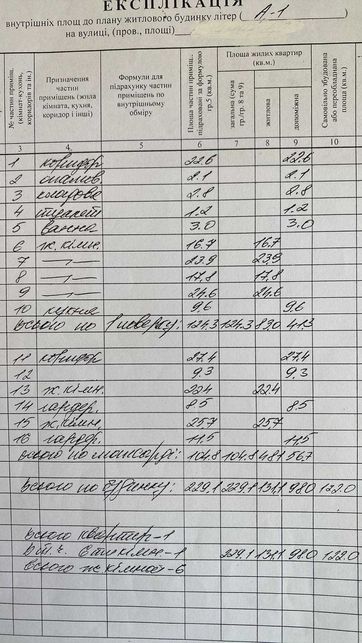 ЕКСПЛІКАЦІЯ
внутрішніх площ до плану житлового будинку літер ( А-1 )
на вулиці, (пров., площі)
№ частин приміщ. (кімнат-кухонь, коридорів та ін.) | Призначення частин приміщень (жола кімната, кухня, коридор і інші) | Формули для підрахунку частин приміщень по внутрішньому обміру | Площа частин приміщ., підраховані за формулою гр.5 (кв.м.) | Площа жилих квартир (кв.м.) | загальна (сума гр./гр. 8 та 9) | житлова | допоміжна | Самовільно збудована або переобладнана площа (кв.м.)
3 4 5 6 7 8 9 10
1 коридор 22.6 22.6
2 2.1 2.1
3 комора 2.8 2.8
4 туалет 1.2 1.2
5 ванна 3.0 3.0
6 ж.кімн. 16.7 16.7
7 —//— 23.9 23.9
8 —//— 17,8 17.8
9 —//— 24.6 24.6
10 кухня 9,6 9.6
Всього по 1 поверху: 124.3 124.3 83.0 41.3
11 коридор 27.4 27.4
12 9.3 9.3
13 ж.кімн. 22.4 22.4
14 гардер. 8.5 8.5
15 ж.кімн. 25.7 25.7
16 гардер. 11.5 11.5
Всього по мансарді: 104.8 104.8 48.1 56.7
Всього по будинку: 229.1 229.1 131.1 98.0 122.0
Всього квартир-1
В т.ч. 6 ти кімн-1 229.1 131.1 98.0 122.0
Всього ж кімнат-6